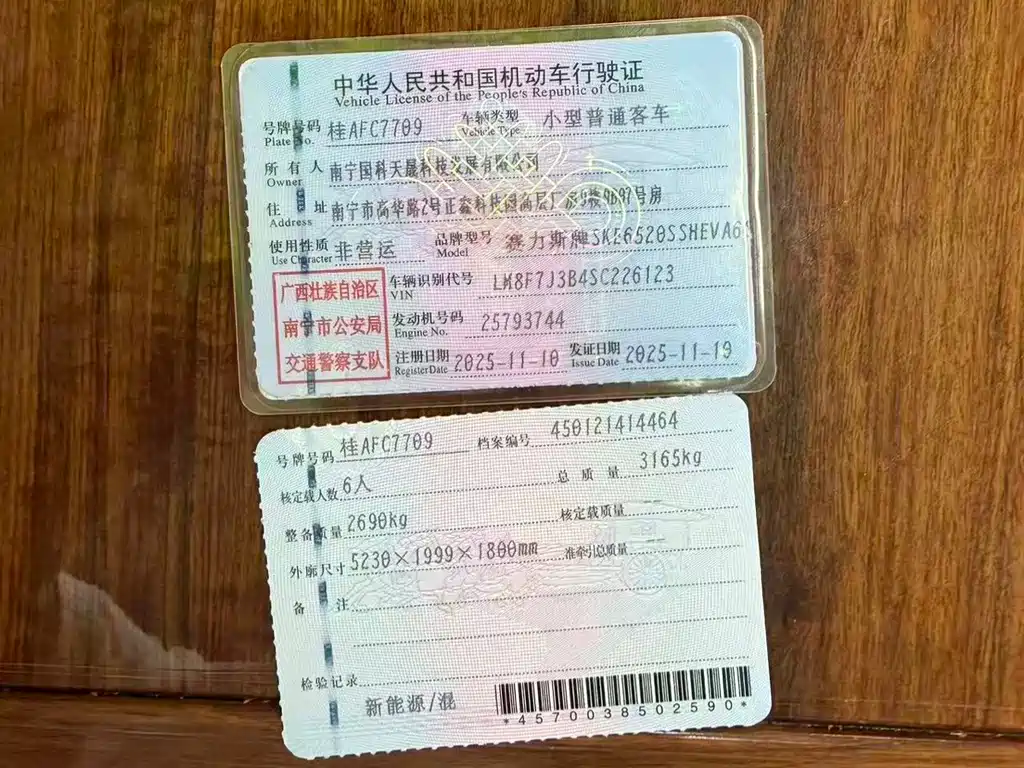 中华人民共和国机动车行驶证
Vehicle License of the People's Republic of China
号牌号码 桂AFC7709 车辆类型 小型普通客车
Plate No. Vehicle Type
所有人 南宁国科天晟科技发展有限公司
Owner
住址 南宁市高华路2号正鑫科技园高层厂房9楼9897号房
Address
使用性质 非营运 品牌型号 赛力斯牌SKE6520SSHEVA6
Use Character Model
广西壮族自治区
南宁市公安局
交通警察支队
车辆识别代号 LM8F7J3B4SC226123
VIN
发动机号码 25793744
Engine No.
注册日期 2025-11-10 发证日期 2025-11-19
Register Date Issue Date
号牌号码 桂AFC7709 档案编号 450121414464
核定载人数 6人 总质量 3165kg
整备质量 2690kg 核定载质量 --
外廓尺寸 5230×1999×1800mm 准牵引总质量 --
备注
检验记录
新能源/混
*4570038502590*